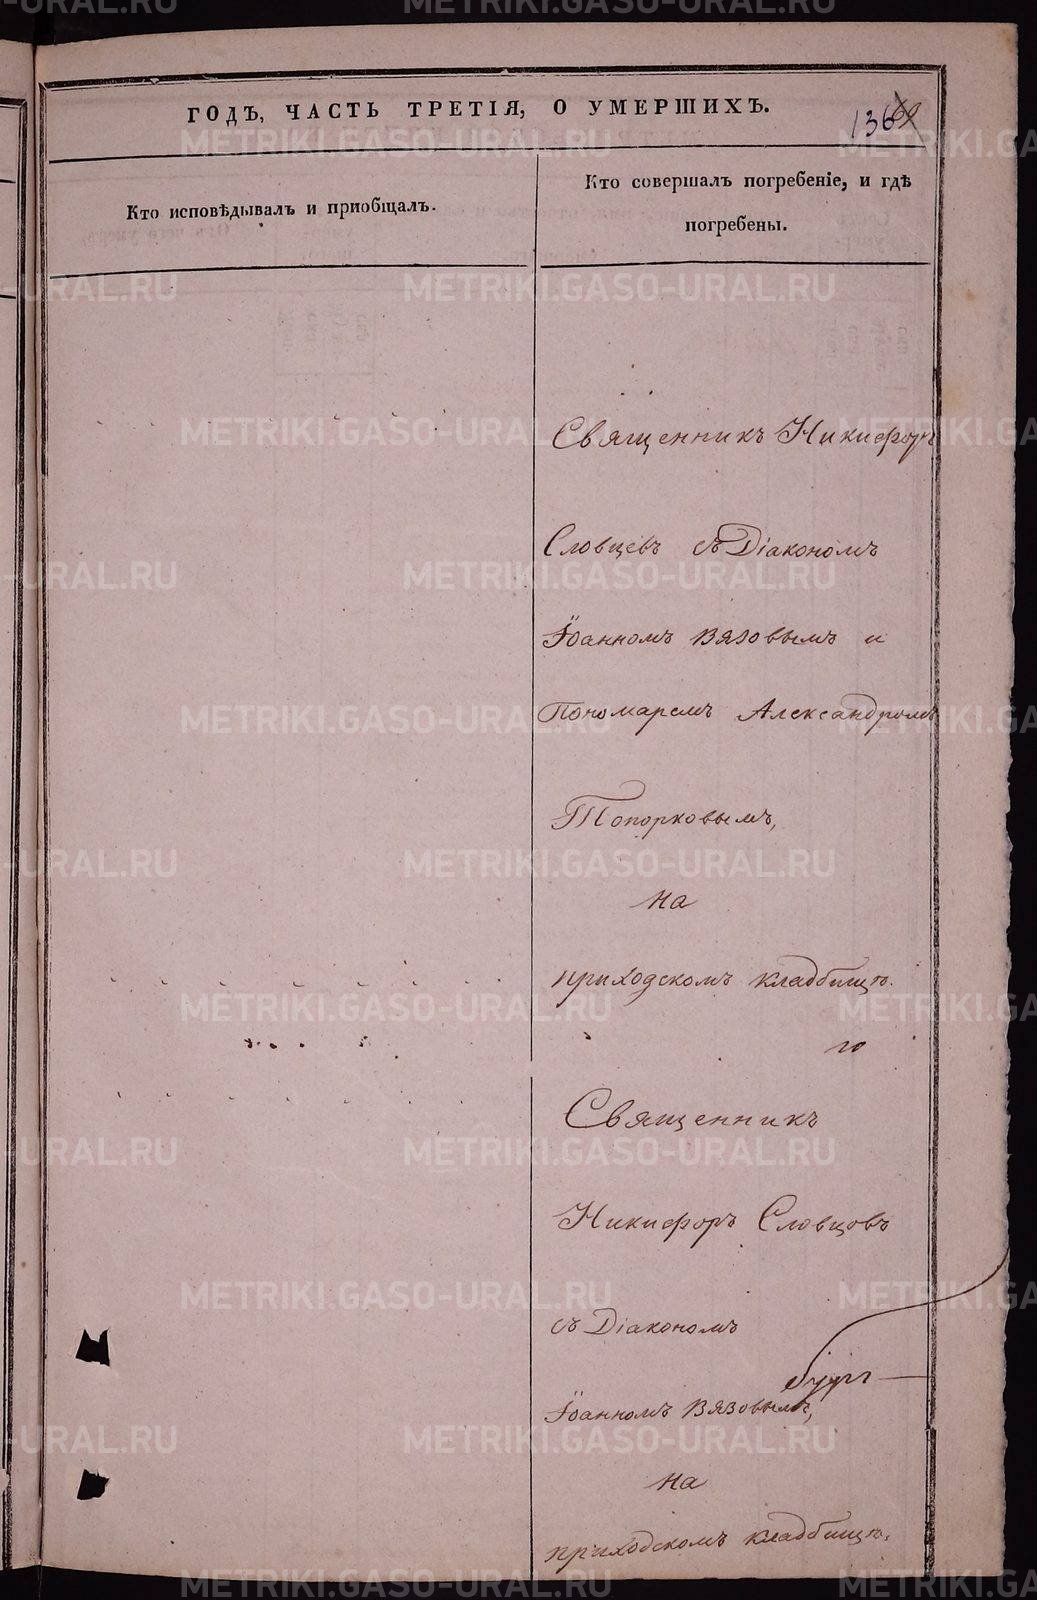 ГОДЪ, ЧАСТЬ ТРЕТІЯ, О УМЕРШИХЪ.
136
Кто исповѣдывалъ и пріобщалъ.
Кто совершалъ погребеніе, и гдѣ
погребены.
Священникъ Никифоръ
Словцевъ съ Діакономъ
Іоанномъ Вязовымъ и
Пономаремъ Александромъ
Топорковымъ,
на
приходскомъ кладбищѣ.
го
Священникъ
Никифоръ Словцовъ
съ Діакономъ
Іоанномъ Вязовымъ,
на
приходскомъ кладбищѣ.
METRIKI.GASO-URAL.RU